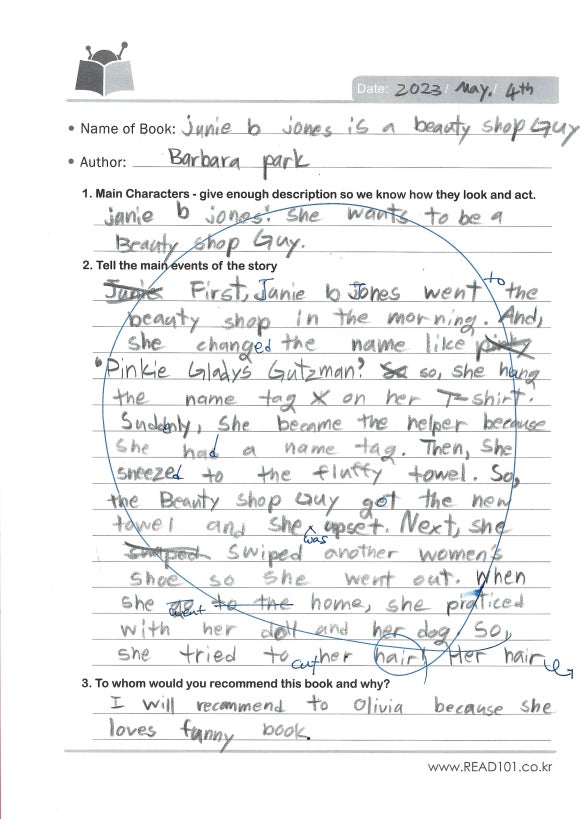 Date: 2023 / May. / 4th
• Name of Book: Junie b jones is a beauty shop Guy
• Author: Barbara park
1. Main Characters - give enough description so we know how they look and act.
janie b jones: She wants to be a
Beauty shop Guy.
2. Tell the main events of the story
First, Junie b Jones went to the
beauty shop in the morning. And,
she changed the name like
"Pinkie Gladys Gutzman". so, she hang
the name tag on her T-shirt.
Suddenly, she became the helper because
she had a name tag. Then, she
sneezed to the fluffy towel. So,
the Beauty shop Guy got the new
towel and she was upset. Next, she
swiped another women's
shoe so she went out. When
she went home, she praticed
with her doll and her dog. So,
she tried to cut her hair! Her hair
3. To whom would you recommend this book and why?
I will recommend to Olivia because she
loves funny book.
www.READ101.co.kr